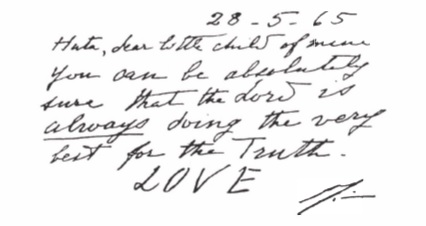 28-5-65
Huta, dear little child of mine
you can be absolutely
sure that the Lord is
always doing the very
best for the Truth.
LOVE